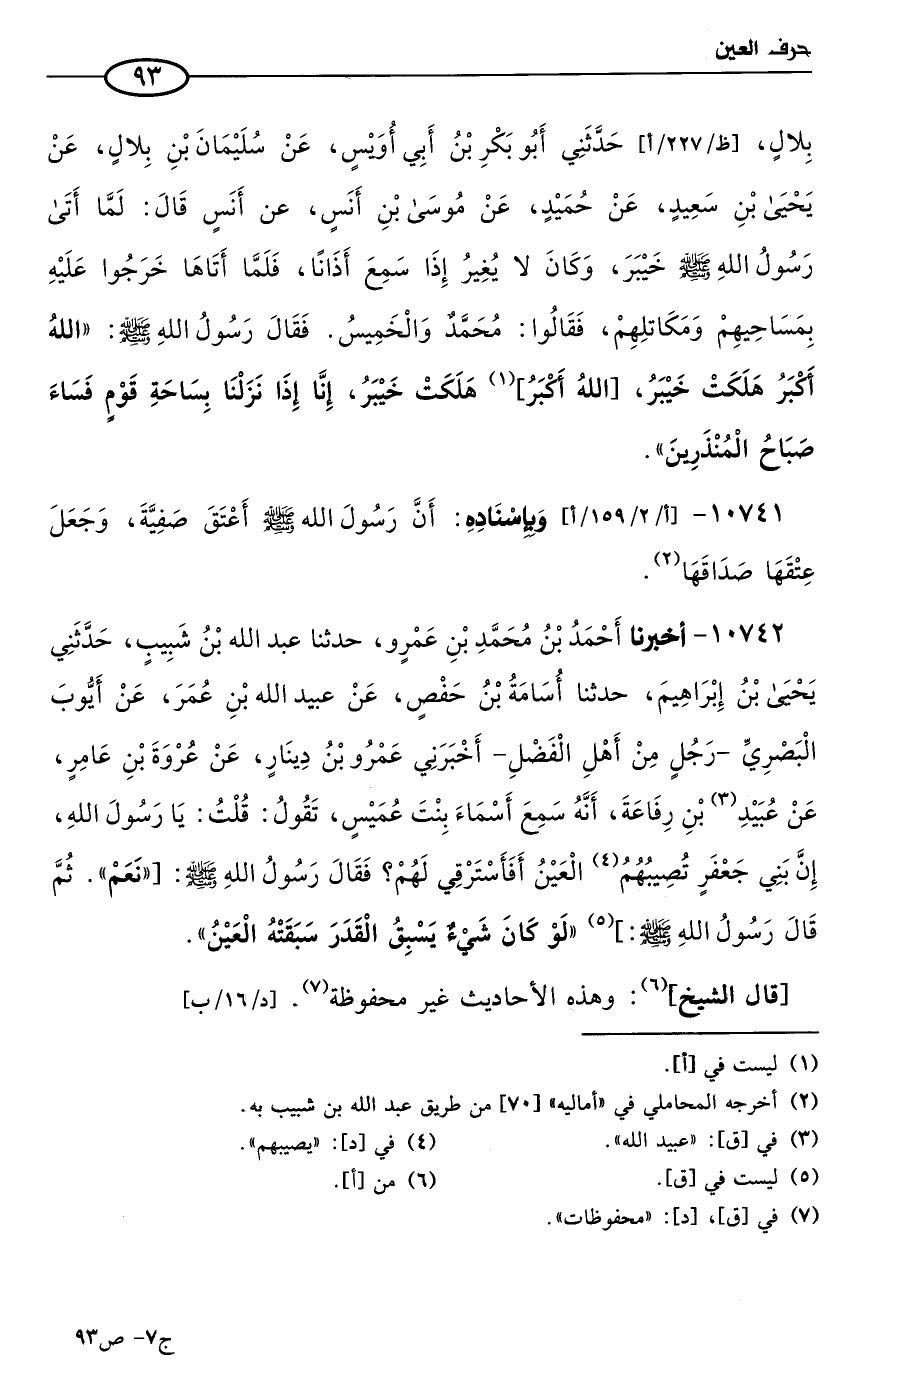 حرف العين
٩٣
بِلالٍ، [ظ/٢٢٧/أ] حَدَّثَنِي أَبُو بَكْرِ بْنُ أَبِي أُوَيْسٍ، عَنْ سُلَيْمَانَ بْنِ بِلالٍ، عَنْ
يَحْيَىٰ بْنِ سَعِيدٍ، عَنْ حُمَيْدٍ، عَنْ مُوسَىٰ بْنِ أَنَسٍ، عن أَنَسٍ قَالَ: لَمَّا أَتَىٰ
رَسُولُ اللهِ ﷺ خَيْبَرَ، وَكَانَ لا يُغِيرُ إِذَا سَمِعَ أَذَانًا، فَلَمَّا أَتَاهَا خَرَجُوا عَلَيْهِ
بِمَسَاحِيهِمْ وَمَكَاتلِهِمْ، فَقَالُوا: مُحَمَّدٌ وَالْخَمِيسُ. فَقَالَ رَسُولُ اللهِ ﷺ: «اللهُ
أَكْبَرُ هَلَكَتْ خَيْبَرُ، [اللهُ أَكْبَرُ](١) هَلَكَتْ خَيْبَرُ، إِنَّا إِذَا نَزَلْنَا بِسَاحَةِ قَوْمٍ فَسَاءَ
صَبَاحُ الْمُنْذَرِينَ».
١٠٧٤١- [أ/٢/١٥٩/أ] وَبِإِسْنَادِهِ: أَنَّ رَسُولَ الله ﷺ أَعْتَقَ صَفِيَّةَ، وَجَعَلَ
عِتْقَهَا صَدَاقَهَا(٢).
١٠٧٤٢- أخبرنا أَحْمَدُ بْنُ مُحَمَّدِ بْنِ عَمْرٍو، حدثنا عبد الله بْنُ شَبِيبٍ، حَدَّثَنِي
يَحْيَىٰ بْنُ إِبْرَاهِيمَ، حدثنا أُسَامَةُ بْنُ حَفْصٍ، عَنْ عبيد الله بْنِ عُمَرَ، عَنْ أَيُّوبَ
الْبَصْرِيِّ -رَجُلٍ مِنْ أَهْلِ الْفَضْلِ- أَخْبَرَنِي عَمْرُو بْنُ دِينَارٍ، عَنْ عُرْوَةَ بْنِ عَامِرٍ،
عَنْ عُبَيْدِ(٣) بْنِ رِفَاعَةَ، أَنَّهُ سَمِعَ أَسْمَاءَ بِنْتَ عُمَيْسٍ، تَقُولُ: قُلْتُ: يَا رَسُولَ اللهِ،
إِنَّ بَنِي جَعْفَرٍ تُصِيبُهُمُ(٤) الْعَيْنُ أَفَأَسْتَرْقِي لَهُمْ؟ فَقَالَ رَسُولُ اللهِ ﷺ: [«نَعَمْ». ثُمَّ
قَالَ رَسُولُ اللهِ ﷺ:](٥) «لَوْ كَانَ شَيْءٌ يَسْبِقُ الْقَدَرَ سَبَقَتْهُ الْعَيْنُ».
[قال الشيخ](٦): وهذه الأحاديث غير محفوظة(٧). [د/١٦/ب]
(١) ليست في [أ].
(٢) أخرجه المحاملي في «أماليه» [٧٠] من طريق عبد الله بن شبيب به.
(٣) في [ق]: «عبيد الله». (٤) في [د]: «يصيبهم».
(٥) ليست في [ق]. (٦) من [أ].
(٧) في [ق]، [د]: «محفوظات».
ج٧- ص٩٣